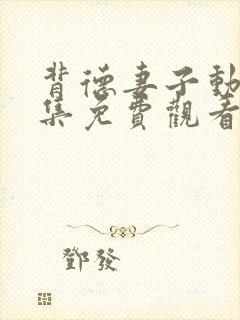 背德妻子動
集免費觀看
鄧發